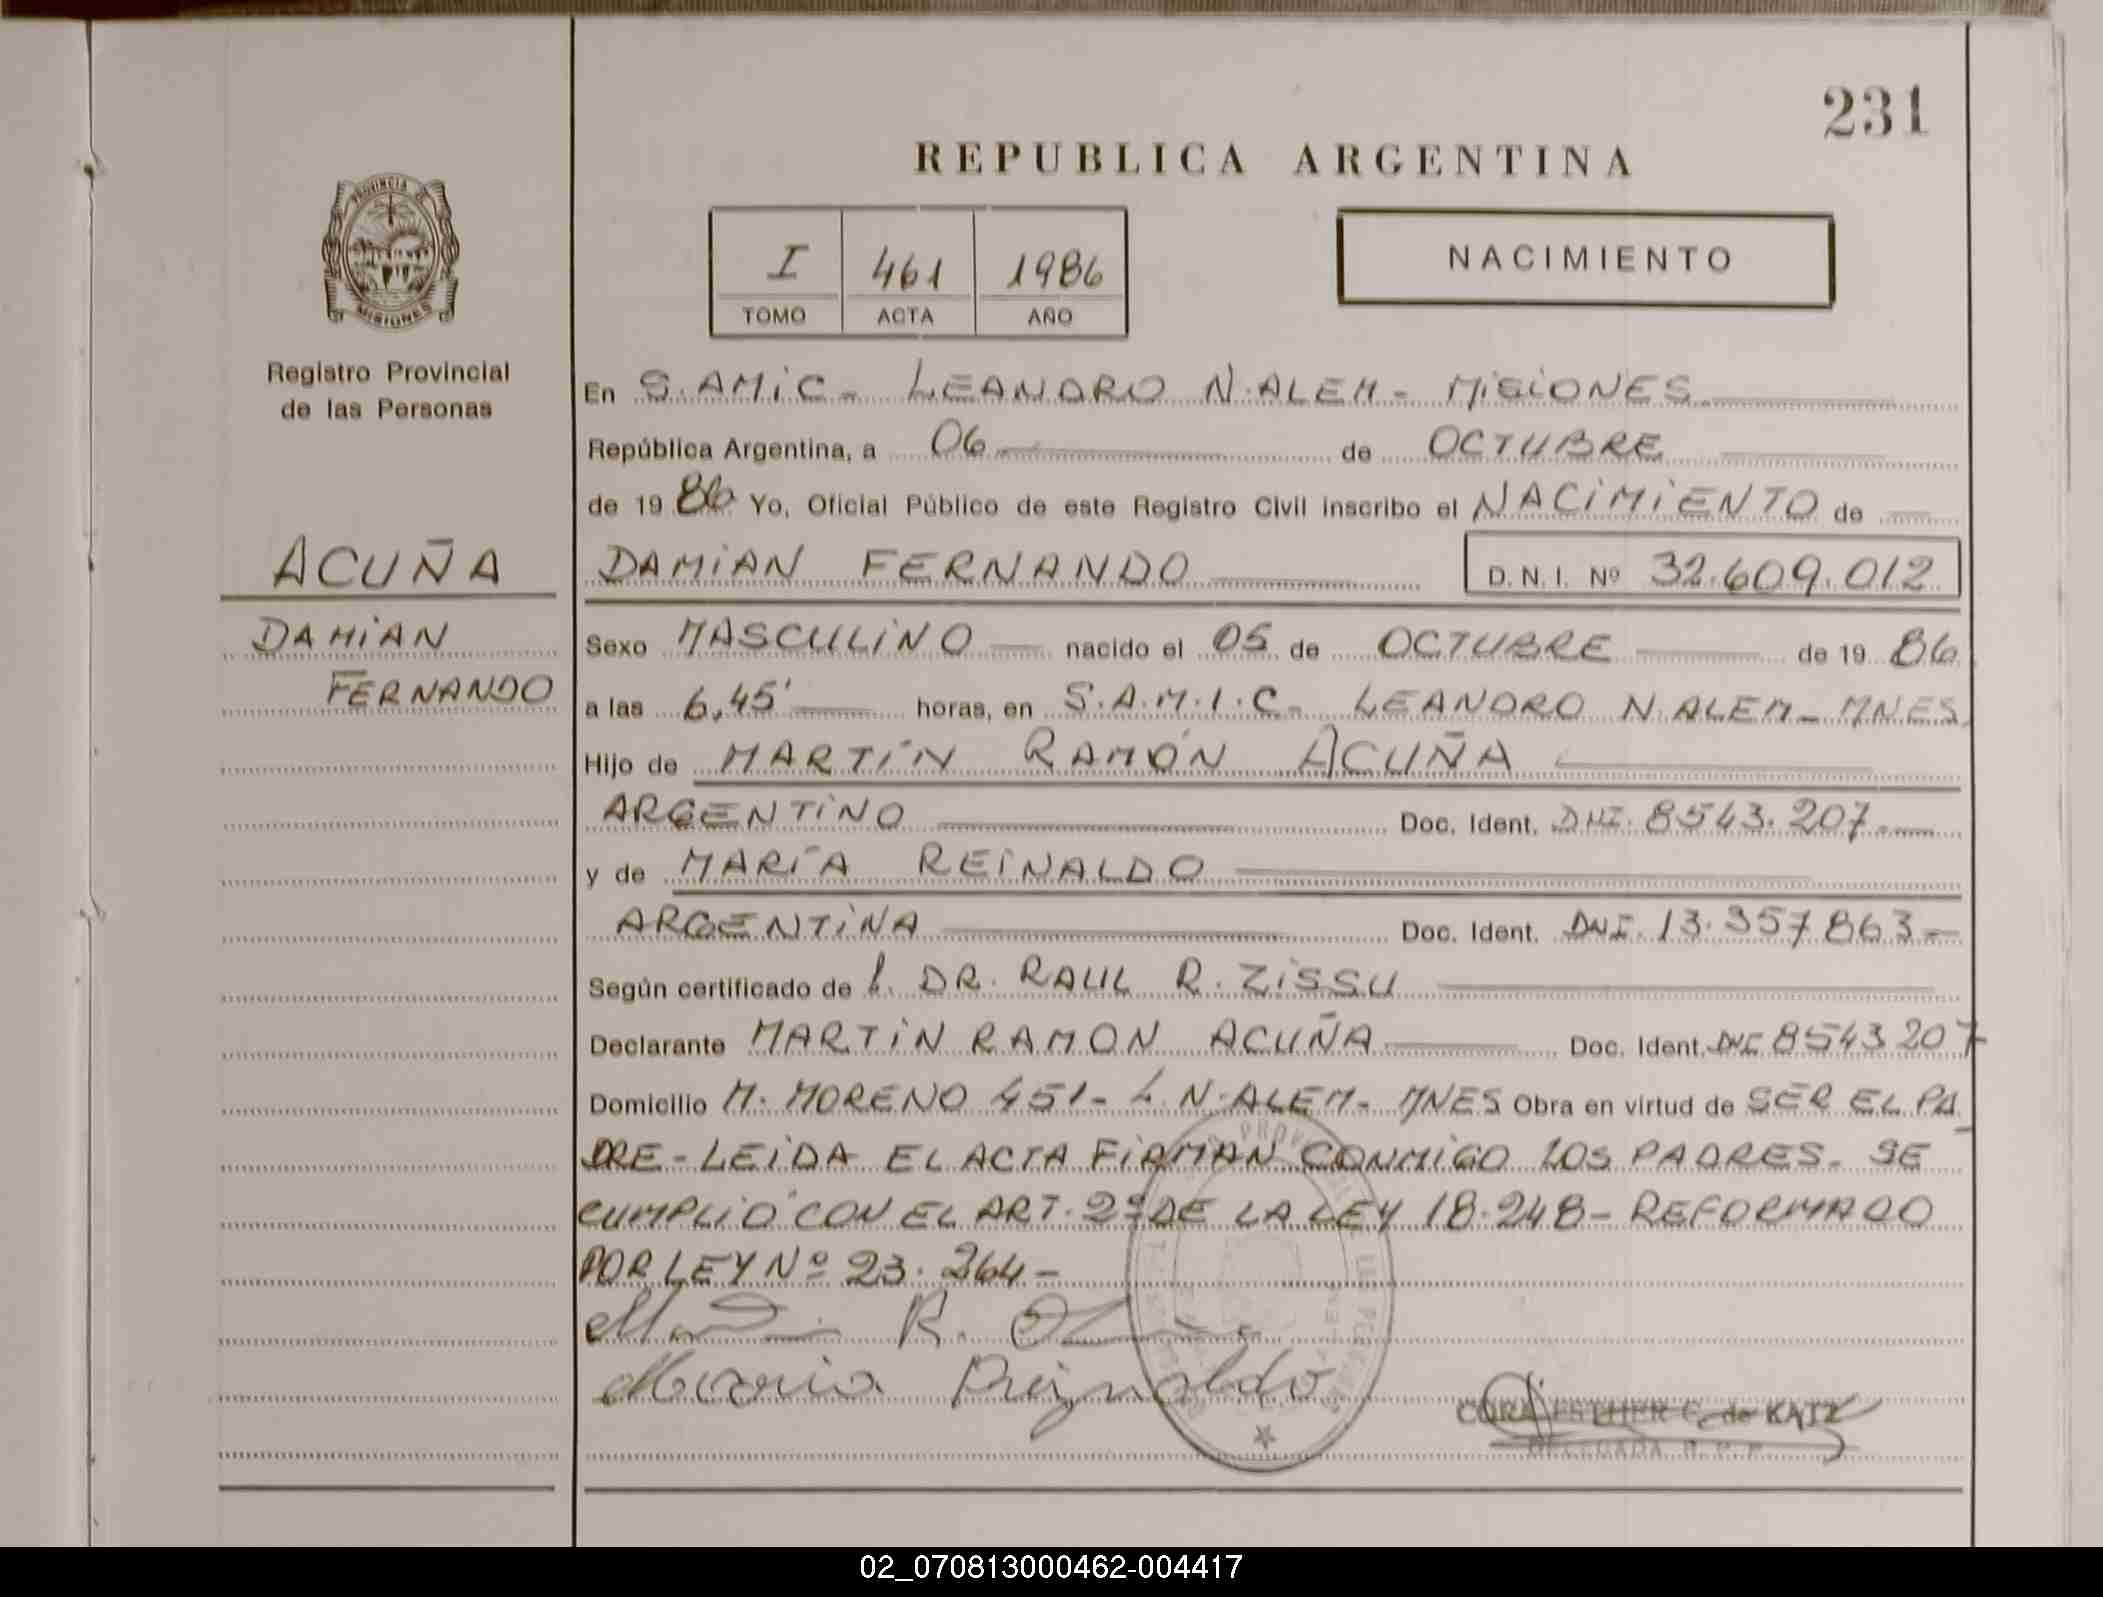 231
REPUBLICA ARGENTINA
PROVINCIA DE
MISIONES
Registro Provincial
de las Personas
I 461 1986
TOMO ACTA AÑO
NACIMIENTO
ACUÑA
DAMIAN
FERNANDO
En S.AMIC - LEANDRO N. ALEM - MISIONES
República Argentina, a 06 de OCTUBRE
de 19 86 Yo, Oficial Público de este Registro Civil inscribo el NACIMIENTO de
DAMIAN FERNANDO D. N. I. Nº 32.609.012
Sexo MASCULINO nacido el 05 de OCTUBRE de 19 86
a las 6,45' horas, en S.A.M.I.C - LEANDRO N. ALEM - MNES
Hijo de MARTÍN RAMÓN ACUÑA
ARGENTINO Doc. Ident. DNI. 8543.207
y de MARÍA REINALDO
ARGENTINA Doc. Ident. DNI. 13.357863 -
Según certificado de l. DR. RAUL R. ZISSU
Declarante MARTIN RAMON ACUÑA Doc. Ident. DNI 8543207
Domicilio M. MORENO 451 - L. N. ALEM - MNES Obra en virtud de SER EL PA
DRE - LEIDA EL ACTA FIRMAN CONMIGO LOS PADRES - SE
CUMPLIO CON EL ART. 2º DE LA LEY 18.248 - REFORMADO
POR LEY Nº 23.264 -
Maria Reynaldo
CORA ESTHER C. de KATZ
DELEGADA R. P. P.
02_070813000462-004417